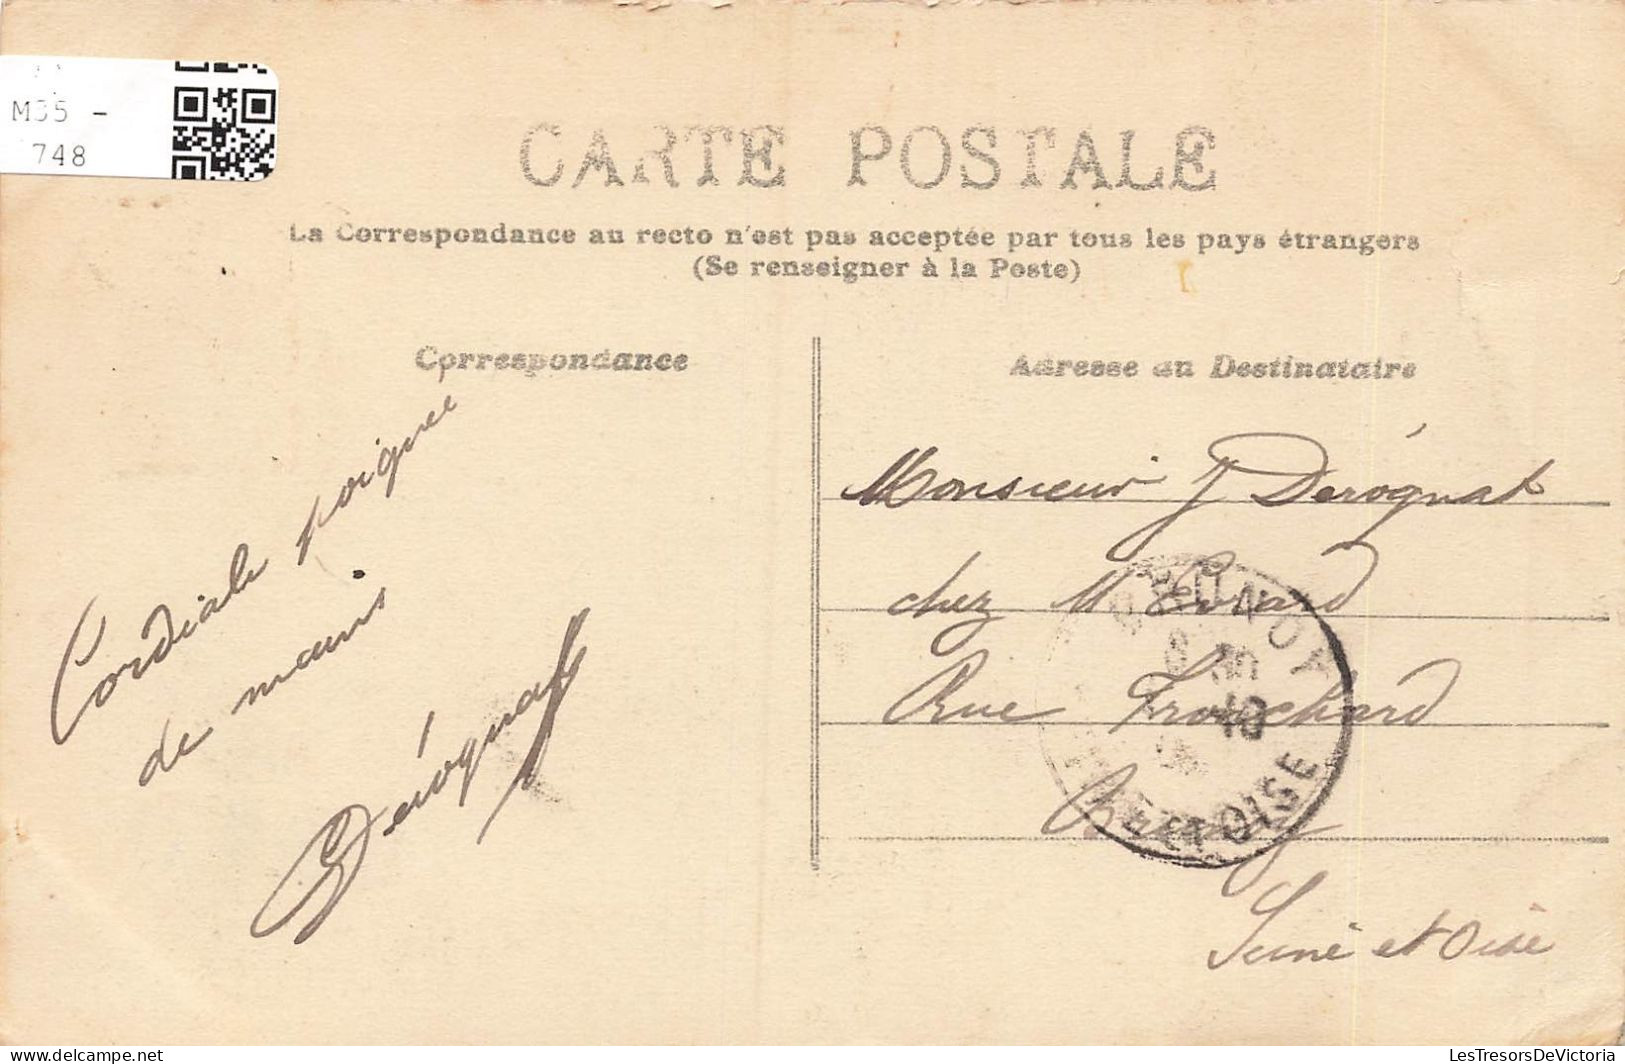 M35 -
748
CARTE POSTALE
La Correspondance au recto n'est pas acceptée par tous les pays étrangers
(Se renseigner à la Poste)
Correspondance
Cordiale poignée
de mains
Dérognat
Adresse au Destinataire
Monsieur J Dérognat
chez M Evrard
Rue
Brunoy
Seine et Oise
BRUNOY
ET OISE
delcampe.net
LesTresorsDeVictoria